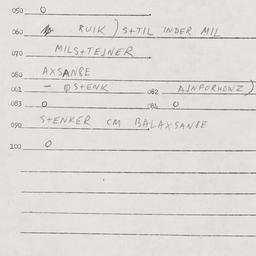 050 0
060 RUIK) STTIL INDER MIL
070 MILSTEJNER
080 AXSANSE
081 - @STENK 082 AJNFORHOWZ)
083 0 084 0
090 STENKER CM BALAXSANSE
100 0